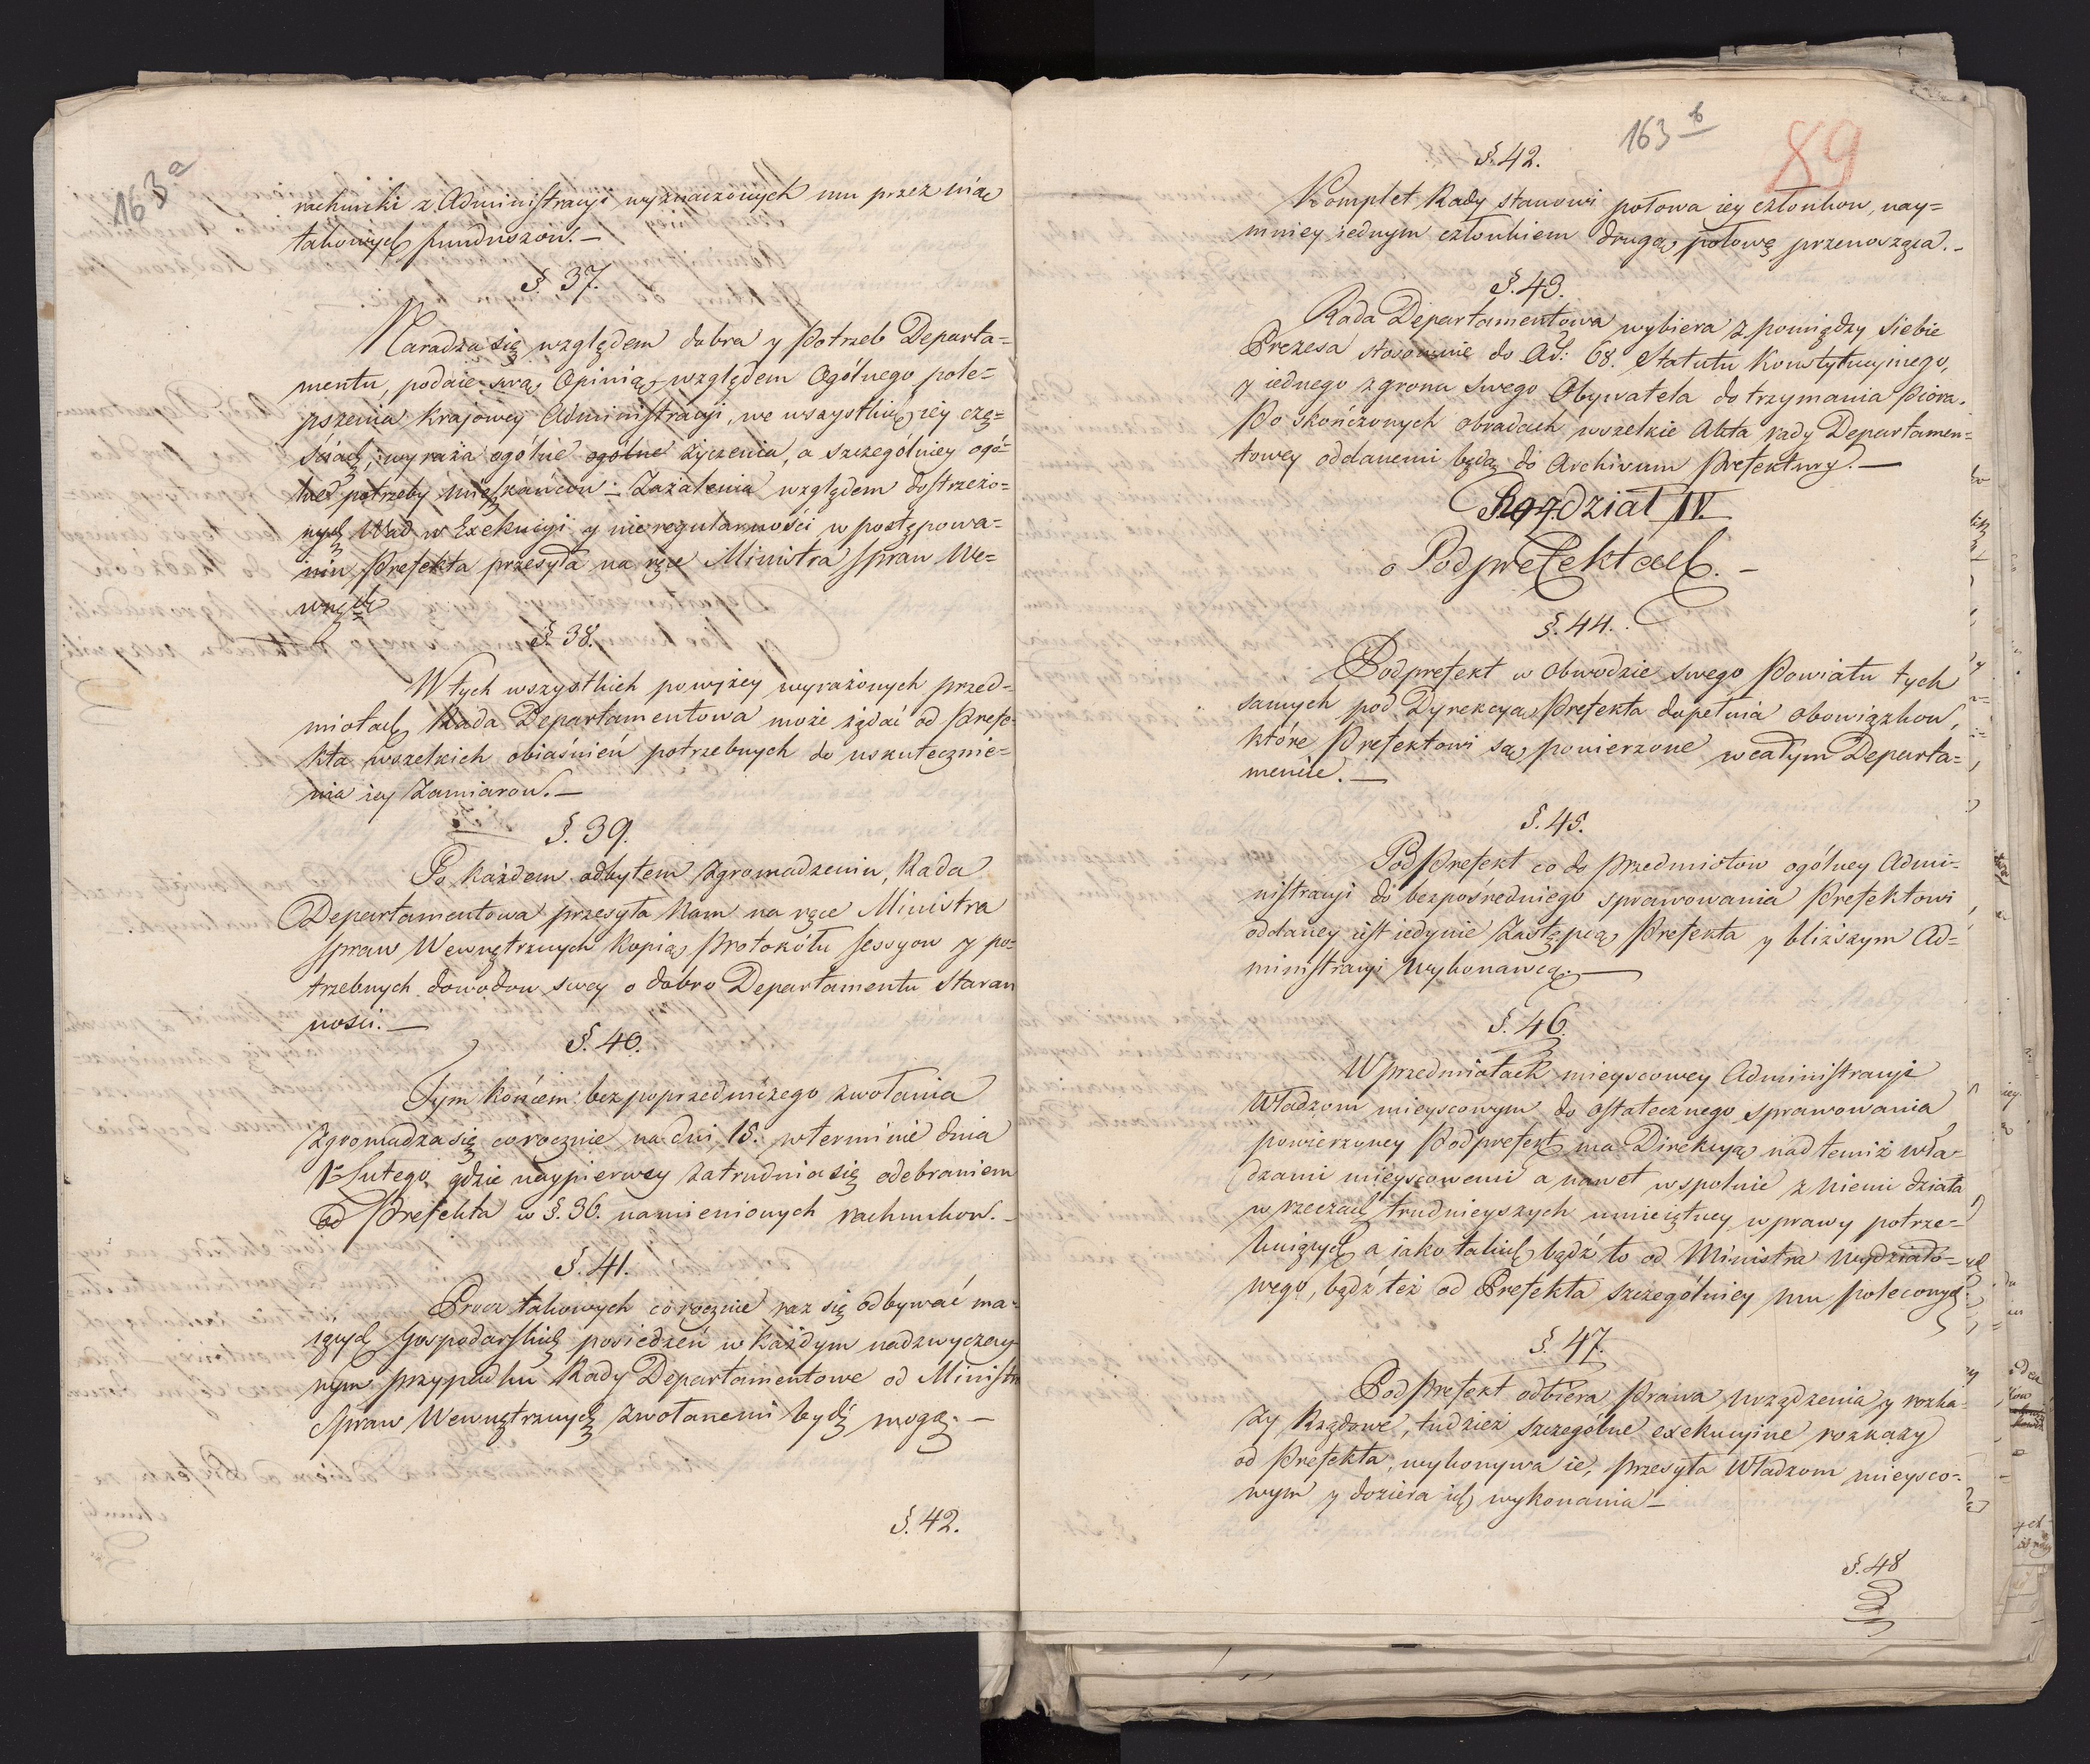 163a
rachunki z Administracyi wyznaczonych mu przez nią
takowych funduszow. —
§ 37.
Naradza się względem dobra y Potrzeb Departa=
mentu, podaie swą Opinią względem Ogólnego pole=
pszenia Krajowey Administracyi, we wszystkich iey czę=
ściach, wyraża ogólne ogólne życzenia, a szczególniey ogó=
lne potrzeby Mieszkańcow — Zażalenia względem dostrzeżo=
nych Wad w Exekucyi y nieregularności w postępowa=
niu Prefekta przesyła na ręce Ministra Spraw We=
wnętz
§ 38.
W tych wszystkich powyżey wyrażonych przed=
miotach Rada Departamentowa może żądać od Prefe=
kta wszelkich obiaśnień potrzebnych do uskutecznie=
nia iey Zamiarow. —
§. 39.
Po każdem odbytem Zgromadzeniu, Rada
Departamentowa przesyła Nam na ręce Ministra
Spraw Wewnętrznych Kopią Protokółu Sessyow y po=
trzebnych dowodow swey o dobro Departamentu Staran
ności. —
§. 40.
Tym końcem bez poprzedniczego zwołania
Zgromadza się corocznie na dni 15. w terminie dnia
1go Lutego, gdzie naypierwey zatrudnia się odebraniem
od Prefekta w §. 36. namienionych rachunkow. —
§. 41.
Procz takowych corocznie raz się odbywać ma=
iących Gospodarskich posiedzeń w każdym nadzwyczay=
nym przypadku Rady Departamentowe od Ministra
Spraw Wewnętrznych Zwołanemi bydź mogą. —
§. 42.
163 b
89
§. 42.
Komplet Rady stanowi połowa iey członkow, nay=
mniey iednym członkiem drugą połowę przenosząca. —
§. 43.
Rada Departamentowa wybiera z pomiędzy siebie
Prezesa stosownie do Art: 68. Statutu Konstytucyinego,
y iednego z grona swego Obywatela do trzymania Pióra.
Po skończonych obradach wszelkie Akta rady Departamen=
towey oddanemi będą do Archivum Prefektury. —
Rozdział IV.
o Podprefektach. —
§. 44.
Podprefekt w Obwodzie swego Powiatu tych
samych pod Dyrekcyą Prefekta dopełnia obowiązkow,
które Prefektowi są powierzone w całym Departa=
mencie. —
§. 45.
Pod Prefekt co do Przedmiotow ogólney Admi=
nistracyi do bezpośredniego sprawowania Prefektowi
oddaney iest iedynie Zastępcą Prefekta y bliższym Ad=
ministracyi Wykonawcą. —
§. 46.
W przedmiotach mieyscowey Administracyi
Władzom mieyscowym do ostatecznego sprawowania
powierzoney Podprefekt ma Direkcyą nad temiż wła=
dzami mieyscowemi a nawet wspolnie z niemi działa
w rzeczach trudnieyszych umieiętney wprawy potrze=
buiących a jako takich bądź to od Ministra Wydziało=
wego, bądź też od Prefekta szczególniey mu poleconych
§. 47.
Pod Prefekt odbiera Prawa, urządzenia y rozka=
zy Rządowe, tudzież szczególne exekucyine rozkazy
od Prefekta, wykonywa ie, przesyła Władzom mieysco=
wym y doziera ich wykonania —
§. 48